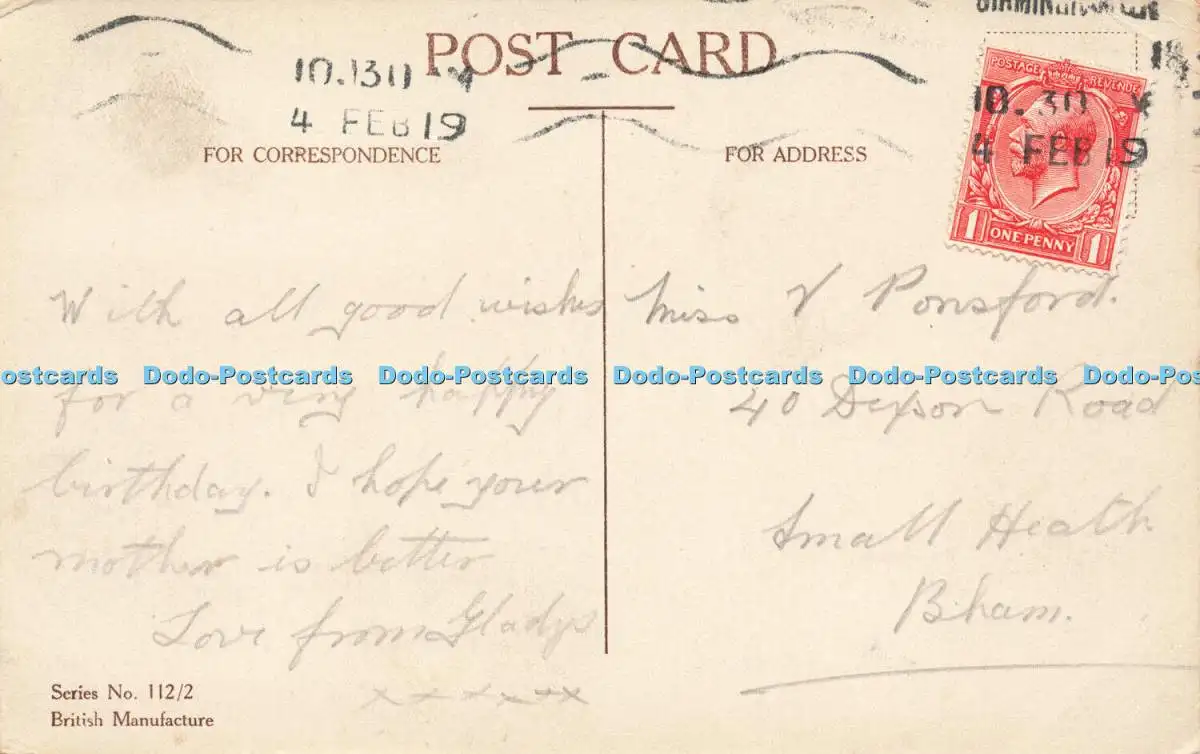 BIRMINGHAM
POST CARD
10.30
4 FEB 19
10.30
4 FEB 19
POSTAGE REVENUE
1 ONE PENNY 1
FOR CORRESPONDENCE
FOR ADDRESS
With all good wishes
for a very happy
birthday. I hope your
mother is better
Love from Gladys
x x x x x x
Miss V Ponsford.
40 Road
Small Heath
B.ham.
ostcards Dodo-Postcards Dodo-Postcards Dodo-Postcards Dodo-Postcards Dodo-Pos
Series No. 112/2
British Manufacture